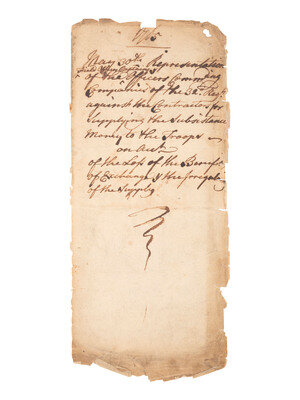 May 30th. Representation
of the Officers Comm.ding
Companies of the
against the Contractors for
Supplying the Subsistance
Money to the Troops
on Acct.
of the Loss of the Benefit
of Exchange & the Irregular
of the Supply